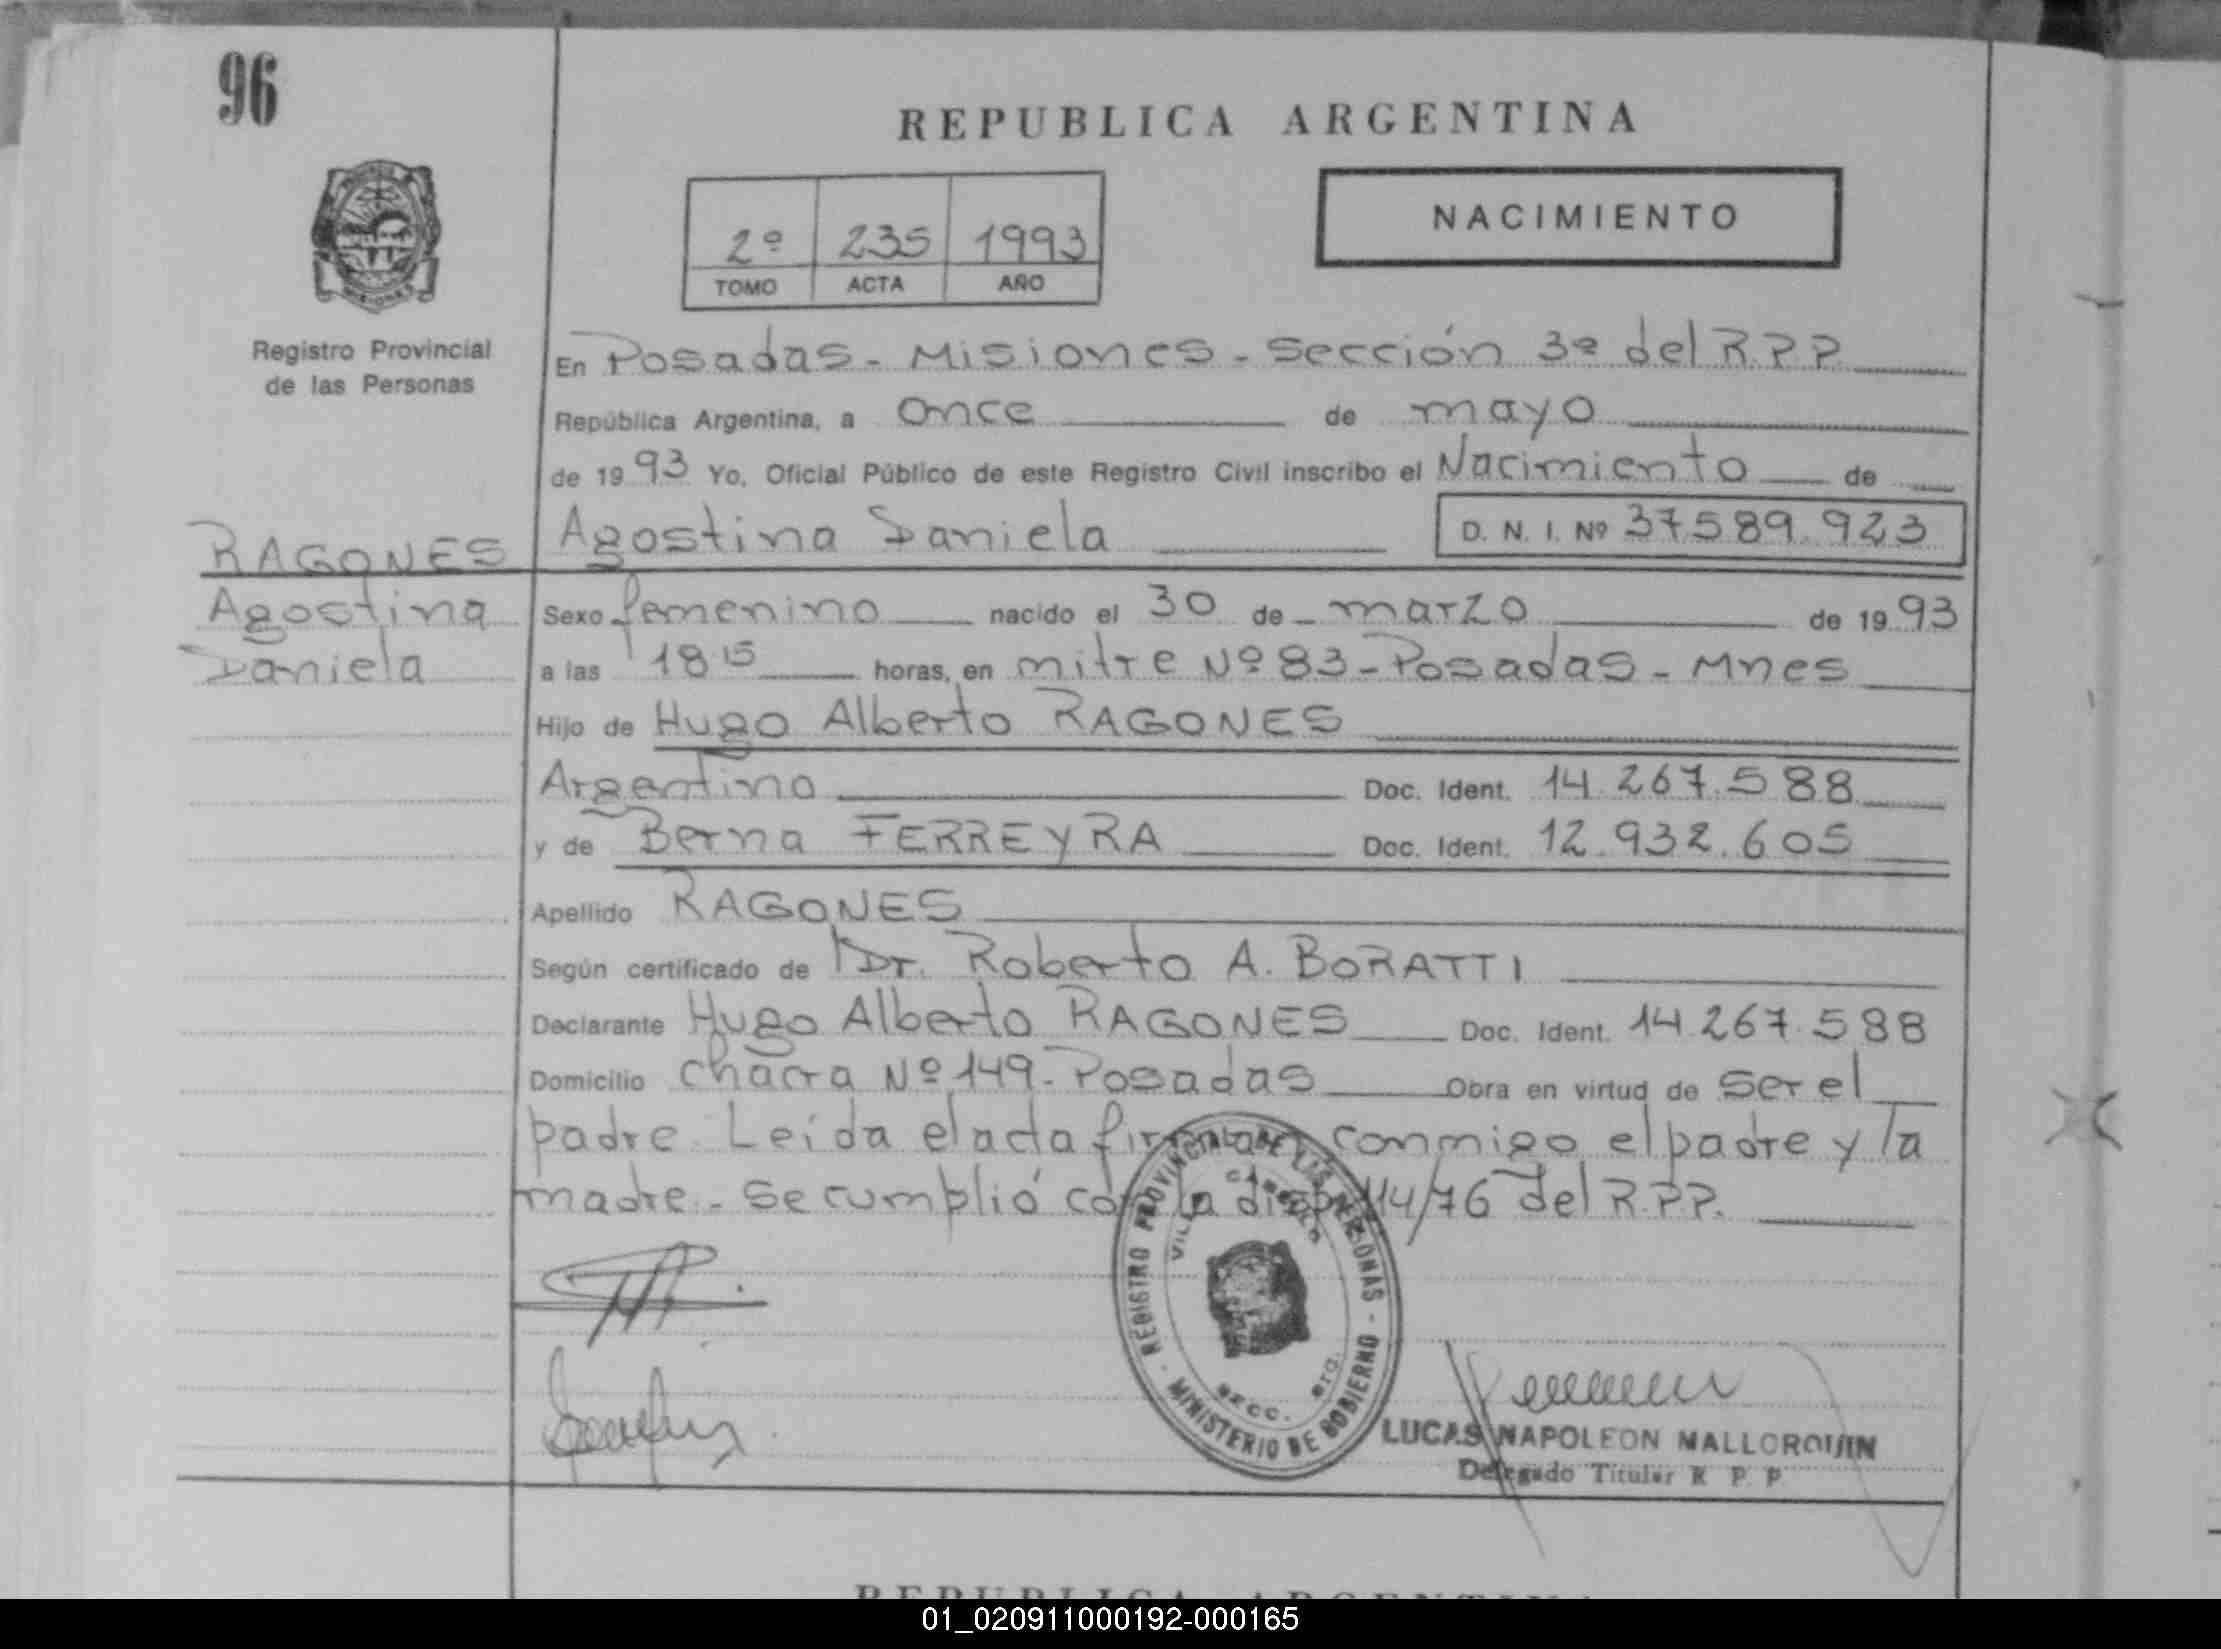 96
REPUBLICA ARGENTINA
2º 235 1993
TOMO ACTA AÑO
NACIMIENTO
MISIONES
Registro Provincial
de las Personas
En Posadas - Misiones - Sección 3ª del R.P.P.
República Argentina, a once de mayo
de 1993 Yo, Oficial Público de este Registro Civil inscribo el Nacimiento de
RAGONES Agostina Daniela D. N. I. Nº 37.589.923
Agostina
Daniela
Sexo femenino nacido el 30 de marzo de 1993
a las 18.15 horas, en mitre Nº 83 - Posadas - Mnes
Hijo de Hugo Alberto RAGONES
Argentino Doc. Ident. 14.267.588
y de Berna FERREYRA Doc. Ident. 12.932.605
Apellido RAGONES
Según certificado de Dr. Roberto A. BORATTI
Declarante Hugo Alberto RAGONES Doc. Ident. 14.267.588
Domicilio chacra Nº 149 - Posadas Obra en virtud de ser el
padre. Leída el acta firman conmigo el padre y la
madre - Se cumplió con la disp. 114/76 del R.P.P.
REGISTRO PROVINCIAL DE LAS PERSONAS - MINISTERIO DE GOBIERNO -
VILLA CABELLO
SECC. 3ra.
LUCAS NAPOLEON MALLORQUIN
Delegado Titular R. P. P.
REPUBLICA ARGENTINA
01_020911000192-000165